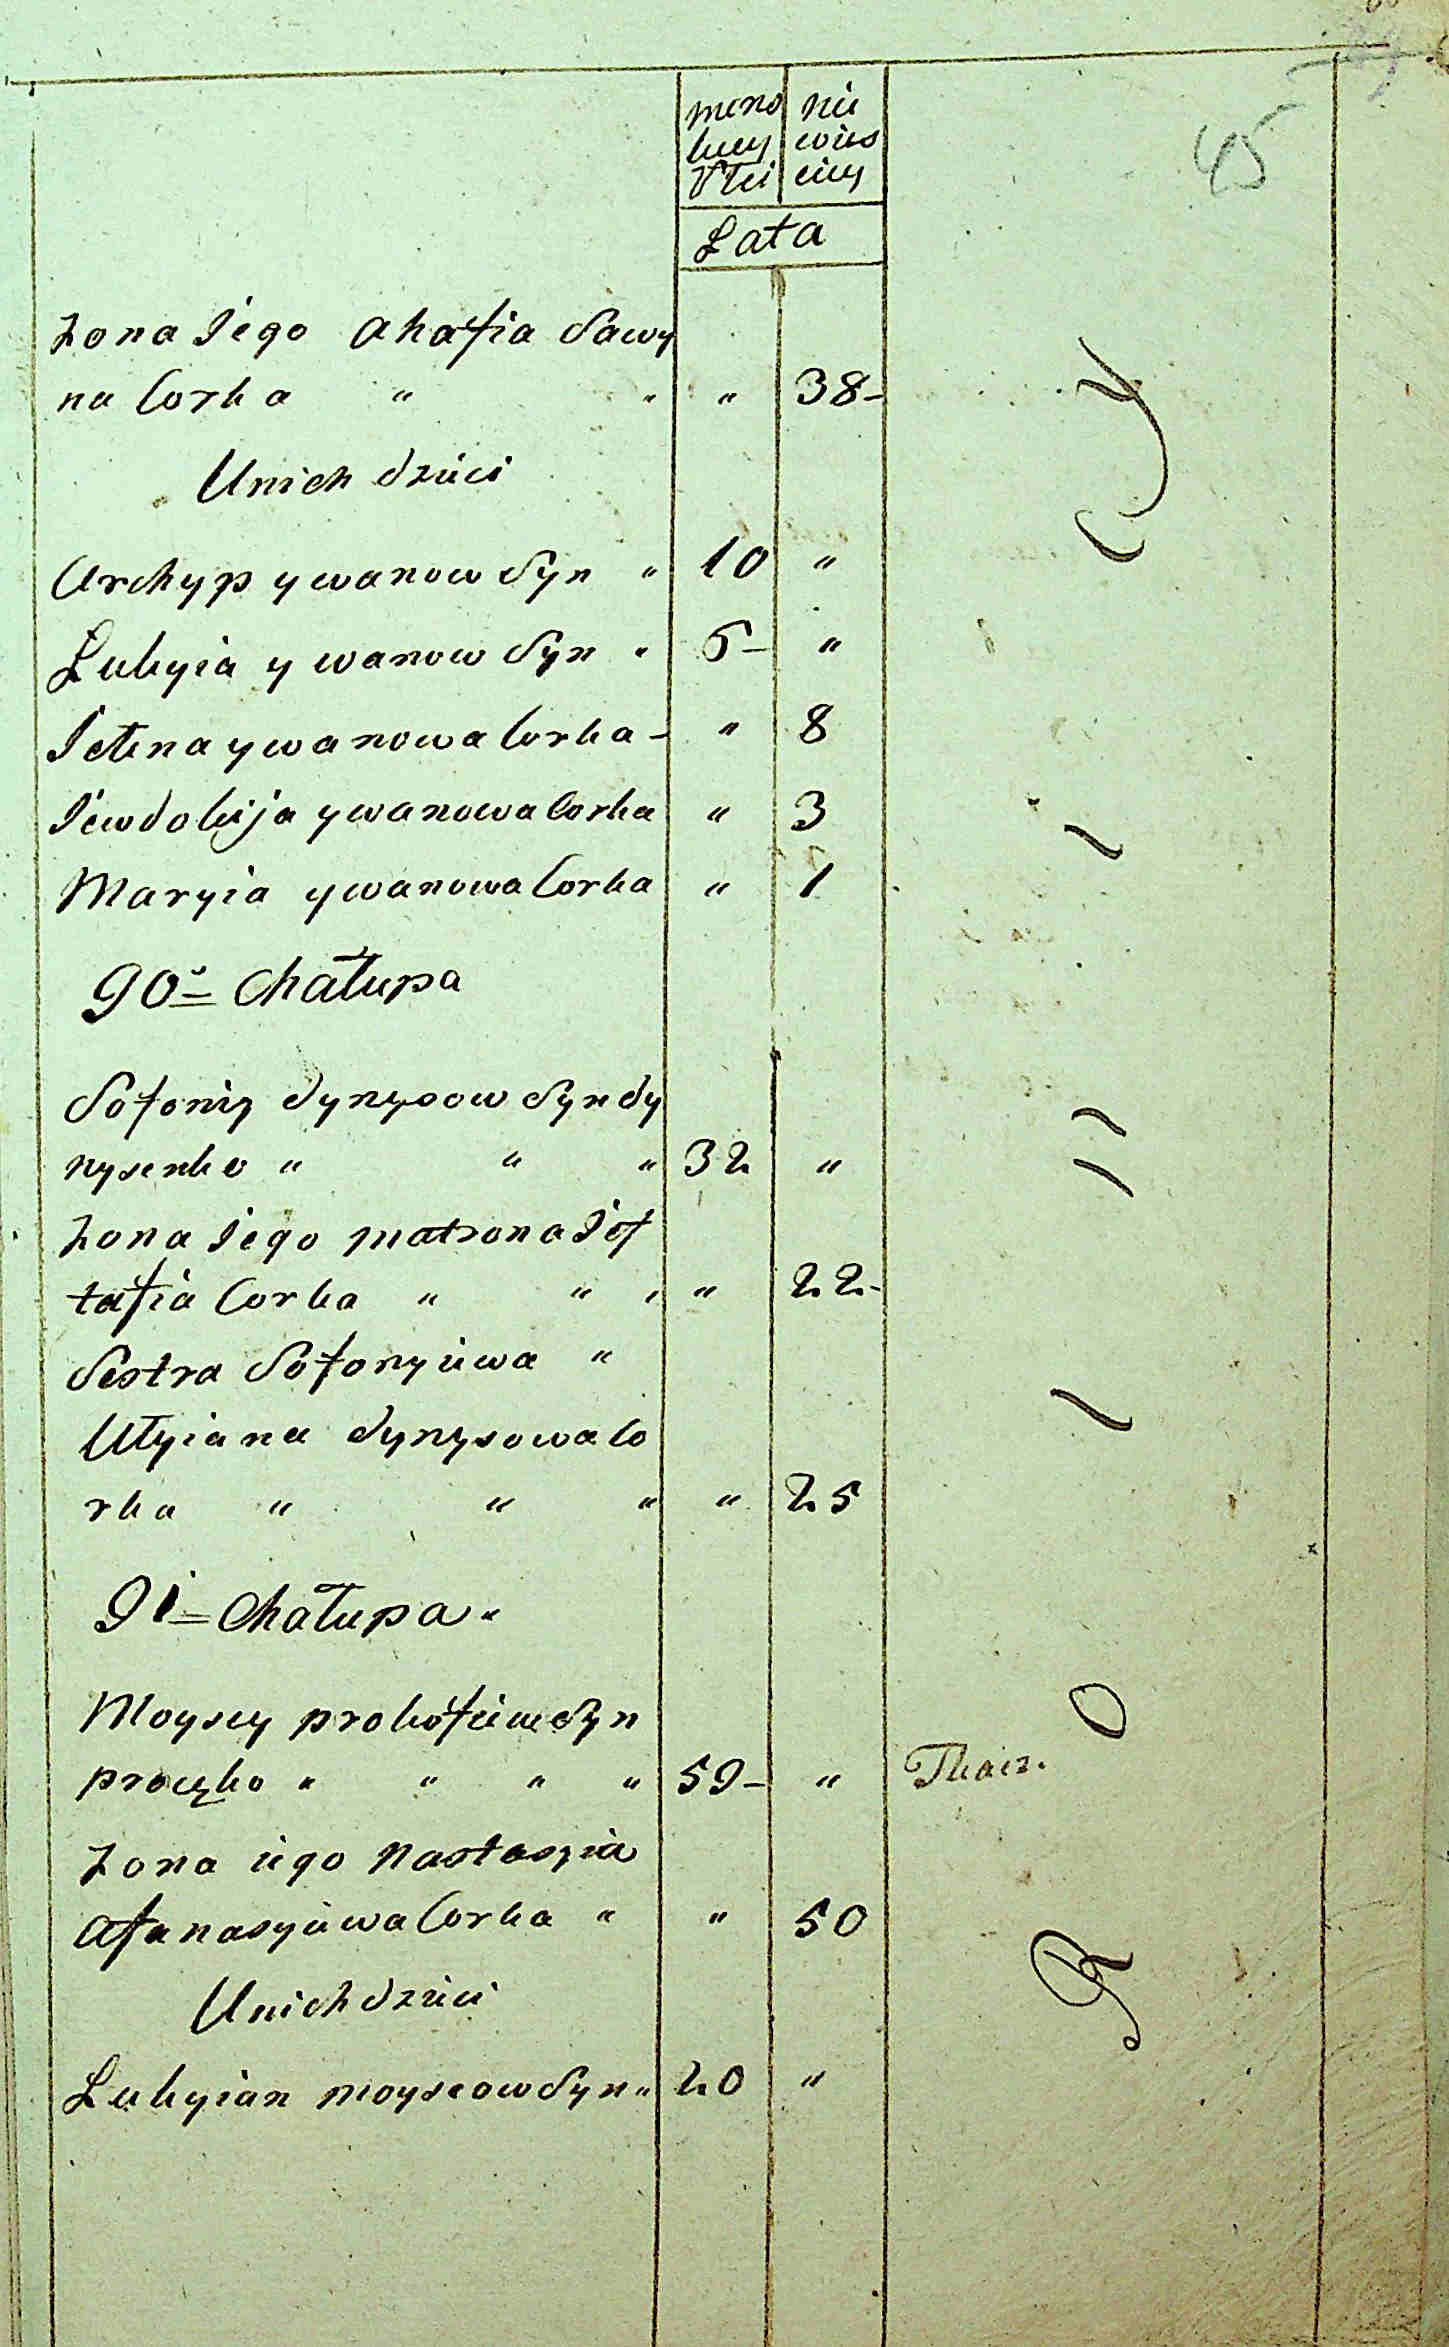 45
męno nie
kiey wias
Płci ciey
Lata
Zona Jego Ahafia Sawy
na Corka " " " 38-
Unich dzieci
Archyp ywanow Syn " 10 "
Łukyia ywanow Syn " 5- "
Jełena ywanowa Corka - " 8
Jewdokija ywanowa Corka " 3
Maryia ywanowa Corka " 1
90= Chałupa
Sofoniy dynysow Syn dy
nysenko " " " 32 "
Zona Jego matrona Jef
tafia Corka " " " " 22-
Sestra Sofonyiewa "
Ułyiana dynysowa Co
rka " " " " 25
91= Chałupa "
Moysey prokofiiew Syn
proczko " " " " 59- " Tkacz.
Zona iego Nastasyia
Afanasyiewa Corka " " 50
Unich dzieci
Łukyian moyseow Syn " 20 "